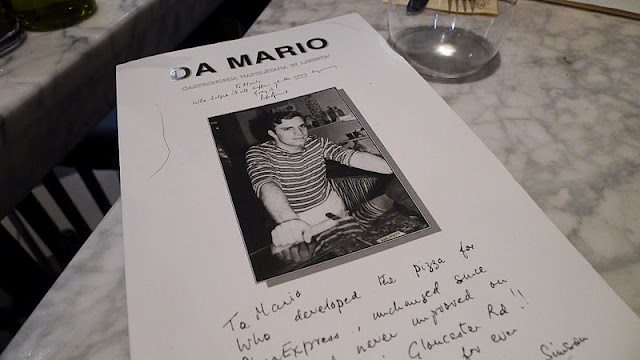 DA MARIO
GASTRONOMIA NAPOLETANA IN LIBERTA'
To Mario
Who helped it all
To Mario
Who developed the pizza for
PizzaExpress : unchanged since
and never improved on
Gloucester Rd !!
for ever